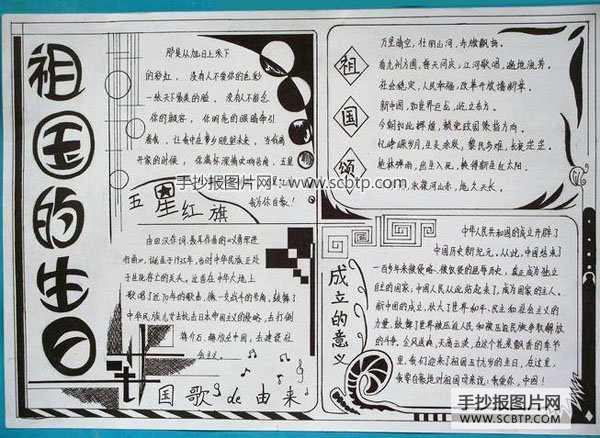 祖国的生日
那是从旭日上采下
的彩虹，没有人不爱你的色彩
一张天下最美的脸，没有人不留恋
你的颜容，你明亮的眼睛牵引
着我，让我守在梦乡眺望未来，当我离
开家的时候，你满怀深情吹响号角，五星
我为你自豪！
五星红旗
由田汉作词、聂耳作曲的《义勇军进
行曲》，诞生于1935年，当时中华民族正处
于生死存亡的关头。这首在中华大地上
歌唱了近70年的歌曲，像一支战斗的号角，鼓舞了
中华民族儿女去抗击日本帝国主义的侵略，去打倒
蒋介石、解放全中国，去建设社
会主义。
国歌de由来
祖国颂
万里晴空，壮丽山河，红旗飘扬。
看九州方圆，普天同庆；江河歌唱，遍地流芳。
社会稳定，人民幸福，改革开放谱新章。
新中国，如世界巨龙，屹立东方。
今朝如此辉煌，赖党政国策指方向。
忆峥嵘岁月，生灵涂炭，黎民多难，长夜茫茫。
枪林弹雨，出生入死，换得新生红太阳。
永葆河山赤，地久天长。
成立的意义
中华人民共和国的成立开辟了
中国历史新纪元。从此，中国结束了
一百多年来被侵略、被奴役的屈辱历史，真正成为独立
自主的国家；中国人民从此站起来了，成为国家的主人。
新中国的成立，壮大了世界和平、民主和社会主义的
力量，鼓舞了世界被压迫人民和被压迫民族争取解放
的斗争。金风送爽，天高云淡，在这个花果飘香的季节
里，我们迎来了祖国五十九岁的生日，在这里，
我要自豪地对祖国母亲说：我爱你，中国！
手抄报图片网-www.scbtp.com
手抄报图片网
WWW.SCBTP.COM